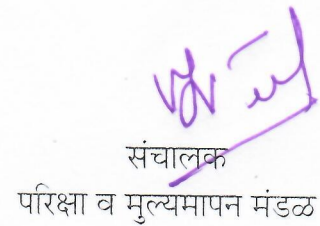 संचालक
परिक्षा व मुल्यमापन मंडळ